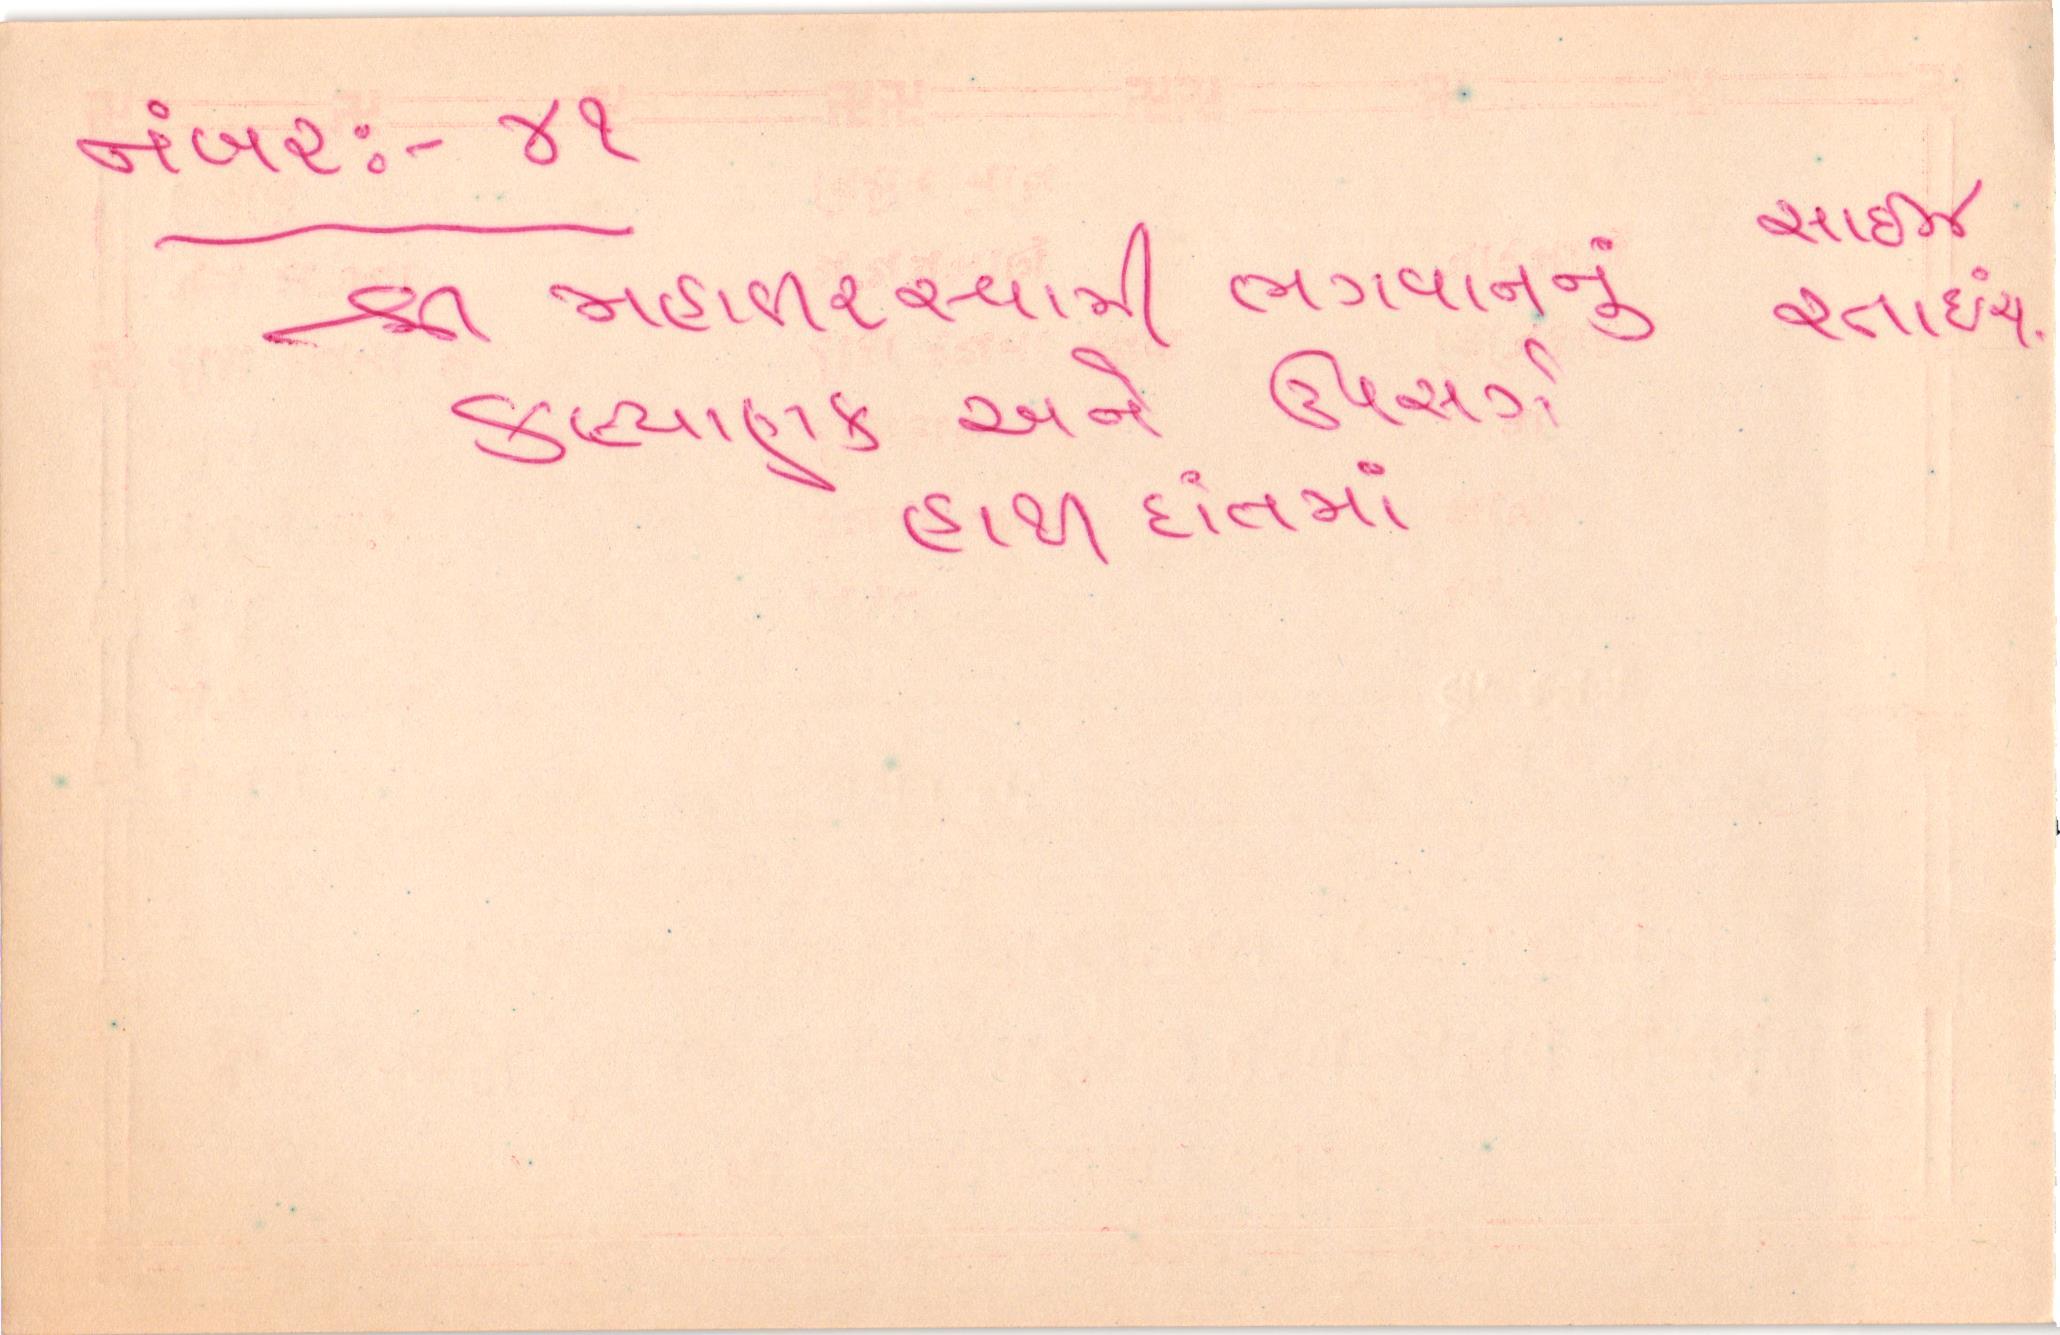 નંબર:- ૪૧
શ્રી મહાવીરસ્વામી ભગવાનનું
કલ્યાણક અને ઉપસર્ગ
હાથી દાંતમાં
સાઇઝ